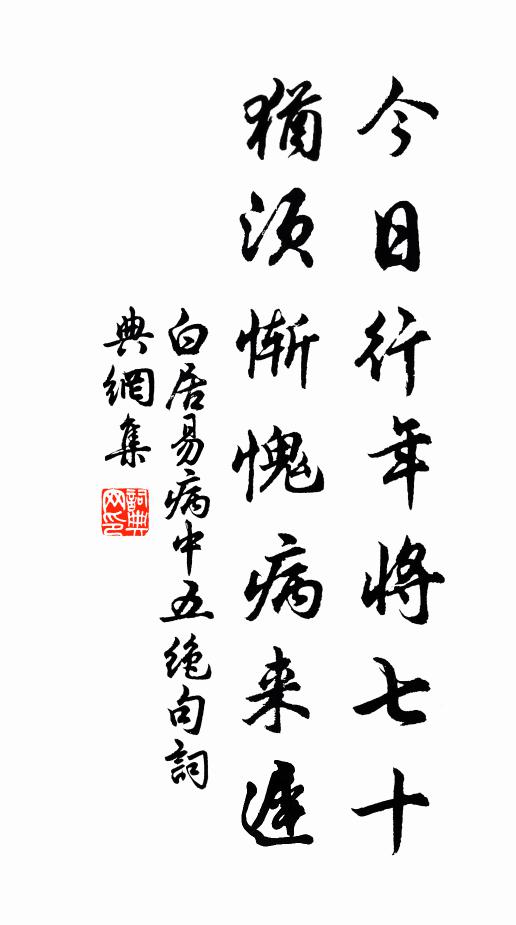 今日行年将七十
猶須慚愧病来遲
白居易病中五绝句詞
典網集
詞典网印